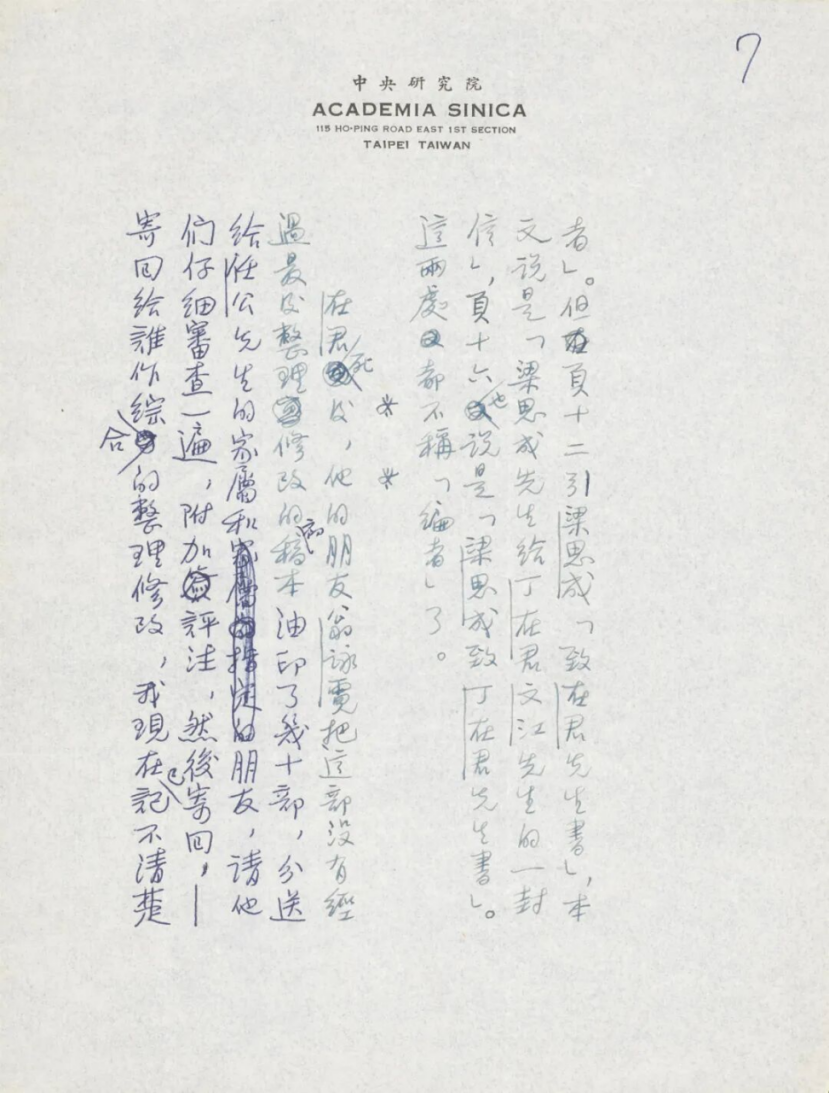 7
中央研究院
ACADEMIA SINICA
115 HO-PING ROAD EAST 1ST SECTION
TAIPEI TAIWAN
者」。但頁十二引梁思成「致在君先生書」,本
文說是「梁思成先生給丁在君文江先生的一封
信」,頁十六也說是「梁思成致丁在君先生書」。
這兩處都不稱「編者」了。
* *
在君死後,他的朋友翁詠霓把這部沒有經
過最後整理修改的稿本油印了幾十部,分送
給任公先生的家屬和的朋友,請他
們仔細審查一遍,附加評注,然後寄回,—
寄回給誰作綜合的整理修改,我現在已記不清楚